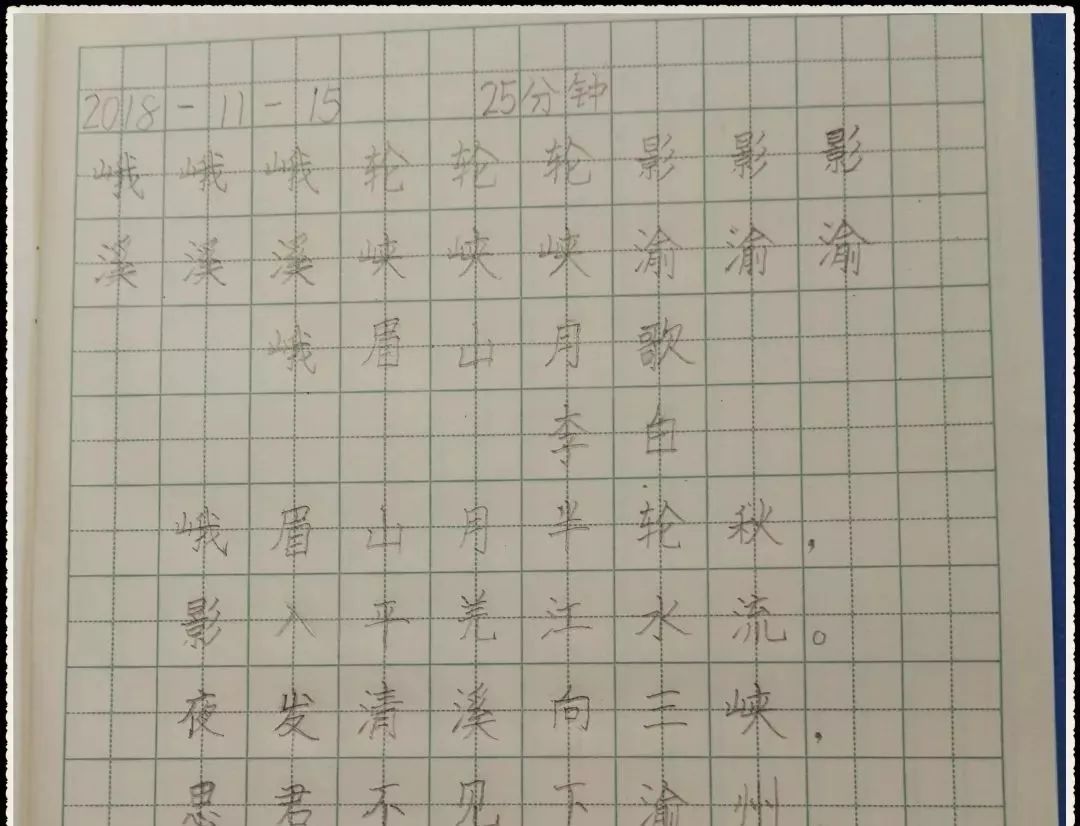 2018-11-15 25分钟
峨峨峨轮轮轮影影影
溪溪溪峡峡峡渝渝渝
峨眉山月歌
李白
峨眉山月半轮秋，
影入平羌江水流。
夜发清溪向三峡，
思君不见下渝州